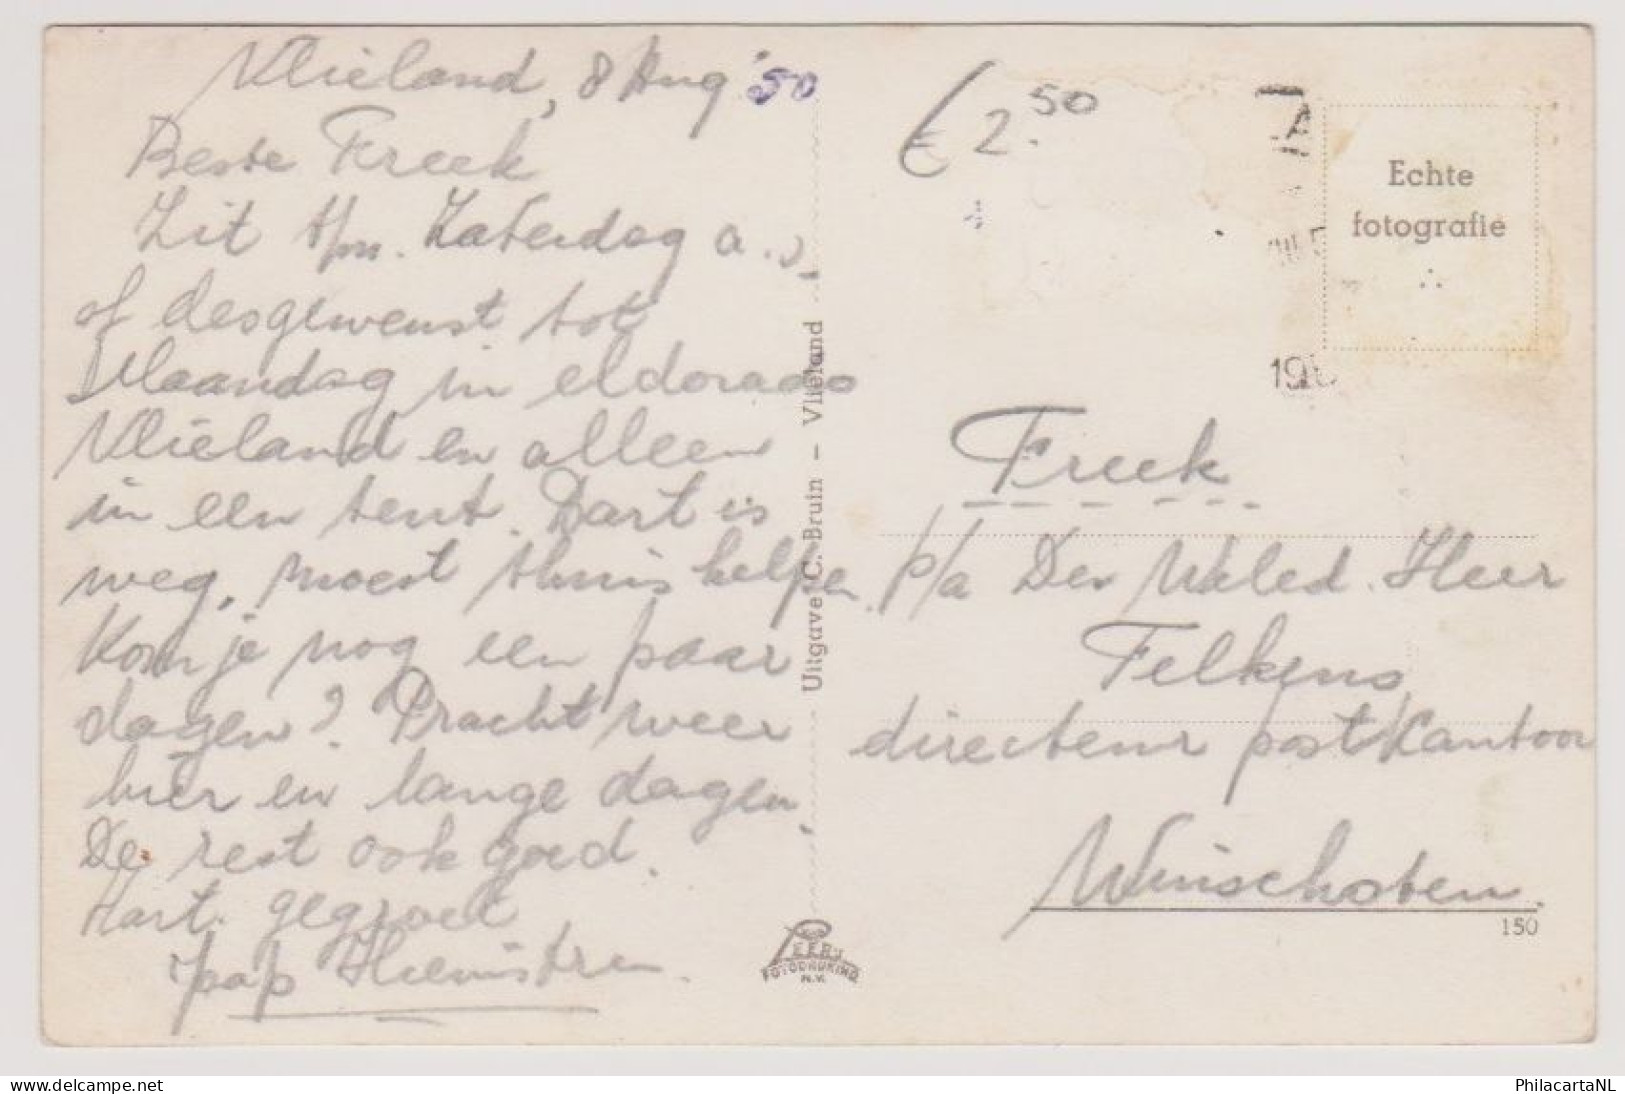 Vlieland, 8 Aug '50
Beste Freek
Zit t/m. Zaterdag a.s.
of desgewenst tot
Maandag in eldorado
Vlieland en alleen
in een tent. Bart is
weg, moest thuis helpen.
Kom je nog een paar
dagen? Pracht weer
hier en lange dagen.
De rest ook goed.
Hart. gegroet
Jaap
Uitgave C. Bruin – Vlieland
LEER'S
FOTODRUKIND
N.V.
€ 2.50
Echte
fotografie
Freek
p/a Den Weled. Heer
Felkens,
directeur postkantoor
Winschoten.
150
delcampe.net
PhilacartaNL